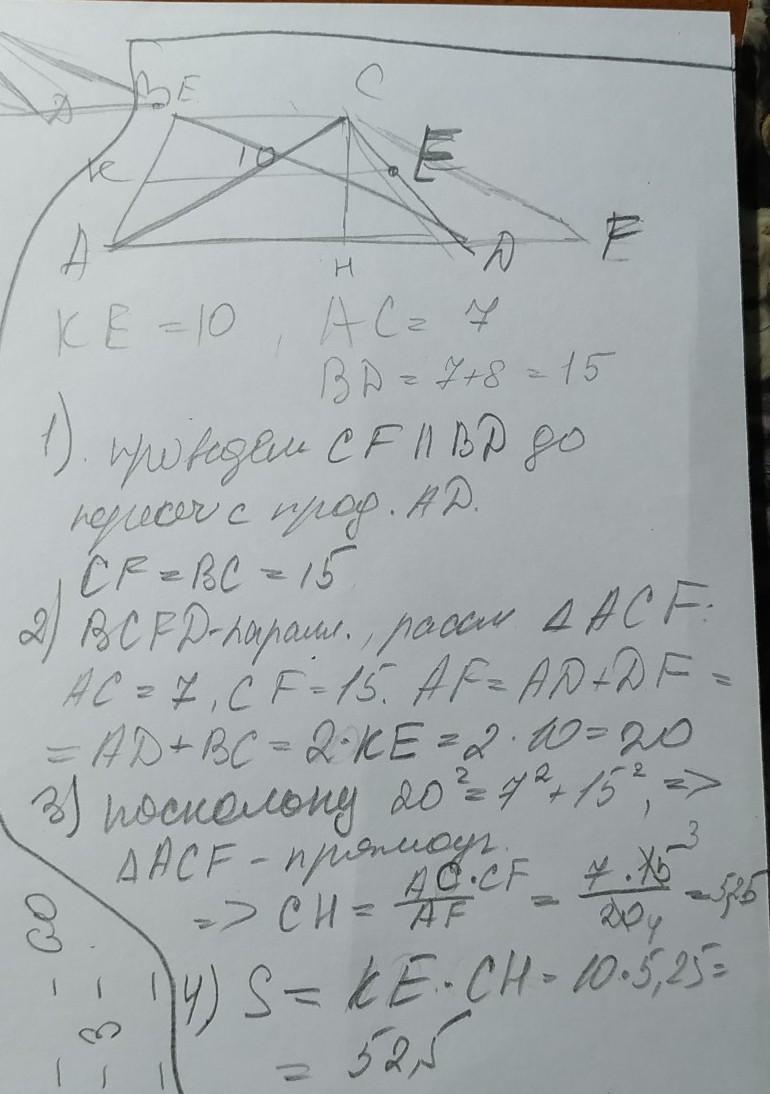 B E C
10
K E
A H D F
KE = 10, AC = 7
BD = 7+8 = 15
1). проведём CF || BD до
пересеч с прод. AD.
CF = BC = 15
2) BCFD-паралл., рассм ΔACF:
AC = 7, CF = 15. AF = AD + DF =
= AD + BC = 2·KE = 2·10 = 20
3) поскольку 20² = 7² + 15², =>
ΔACF - прямоуг.
=> CH = AC·CF / AF = 7·15 3 / 20 4 = 5,25
4) S = KE · CH = 10·5,25 =
= 52,5